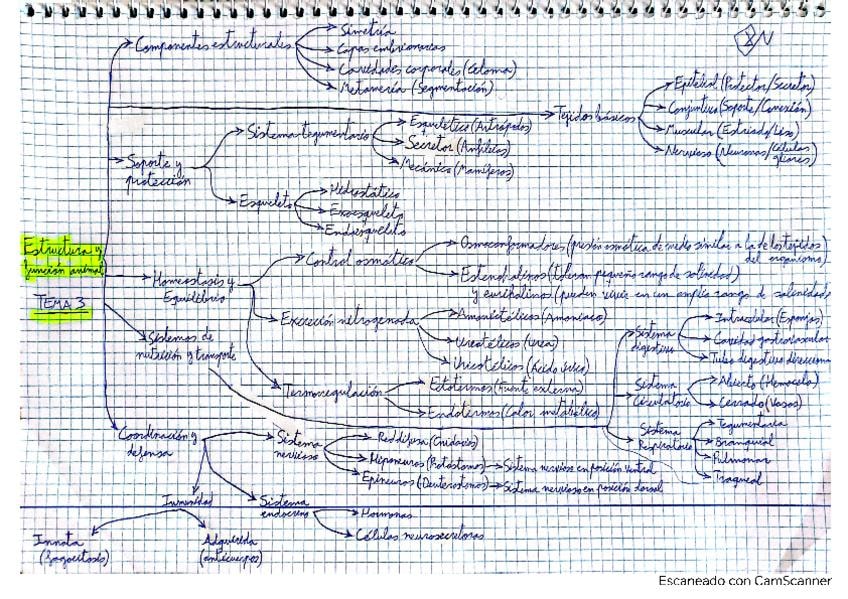 Componentes estructurales
Simetría
Capas embrionarias
Cavidades corporales (Celoma)
Metamería (Segmentación)
Tejidos básicos
Epitelial (Protector/Secretor)
Conjuntivo (Soporte/Conexión)
Muscular (Estriado/Liso)
Nervioso (Neuronas/Células
gliares)
Soporte y
protección
Sistema tegumentario
Esquelético (Artrópodos)
Secretor (Anfibios)
Mecánico (Mamíferos)
Esqueleto
Hidrostático
Exoesqueleto
Endoesqueleto
Estructura y
función animal
TEMA 3
Homeostasis y
Equilibrio
Control osmótico
Osmoconformadores (presión osmótica de medio similar a la de los tejidos
del organismo)
Estenohalinos (toleran pequeño rango de salinidad)
y eurihalinos (pueden vivir en un amplio rango de salinidad)
Excreción nitrogenada
Amoniotélicos (Amoníaco)
Ureotélicos (Urea)
Uricotélicos (Ácido úrico)
Termorregulación
Ectotermos (Fuente externa)
Endotermos (Calor metabólico)
Sistemas de
nutrición y transporte
Sistema
digestivo
Intracelular (Esponjas)
Cavidad gastrovascular
Tubo digestivo
Sistema
Circulatorio
Abierto (Hemocele)
Cerrado (Vasos)
Sistema
Respiratorio
Tegumentaria
Branquial
Pulmonar
Traqueal
Coordinación y
defensa
Sistema
nervioso
Red difusa (Cnidarios)
Hiponeuros (Protóstomos) → Sistema nervioso en posición ventral
Epineuros (Deuteróstomos) → Sistema nervioso en posición dorsal
Sistema
endocrino
Hormonas
Células neurosecretoras
Inmunidad
Innata
(fagocitosis)
Adquirida
(anticuerpos)
Escaneado con CamScanner